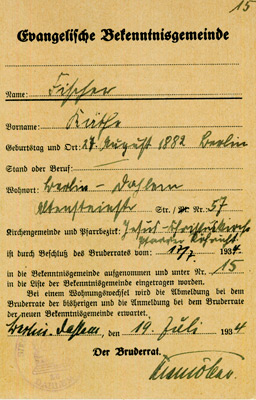 15
Evangelische Bekenntnisgemeinde
Name: Fischer
Vorname: Käthe
Geburtstag und Ort: 27. August 1882 Berlin
Stand oder Beruf:
Wohnort: Berlin - Dahlem
Altensteinstr Str. / Nr. 57
Kirchengemeinde und Pfarrbezirk: Jesus-Christuskirche
Pfarrer
ist durch Beschluß des Bruderrates vom 17/7 1934
in die Bekenntnisgemeinde aufgenommen und unter Nr. 15
in die Liste der Bekenntnisgemeinde eingetragen worden.
Bei einem Wohnungswechsel wird die Abmeldung bei dem
Bruderrate der bisherigen und die Anmeldung bei dem Bruderrate
der neuen Bekenntnisgemeinde erwartet.
Berlin-Dahlem, den 19. Juli 1934
Der Bruderrat.